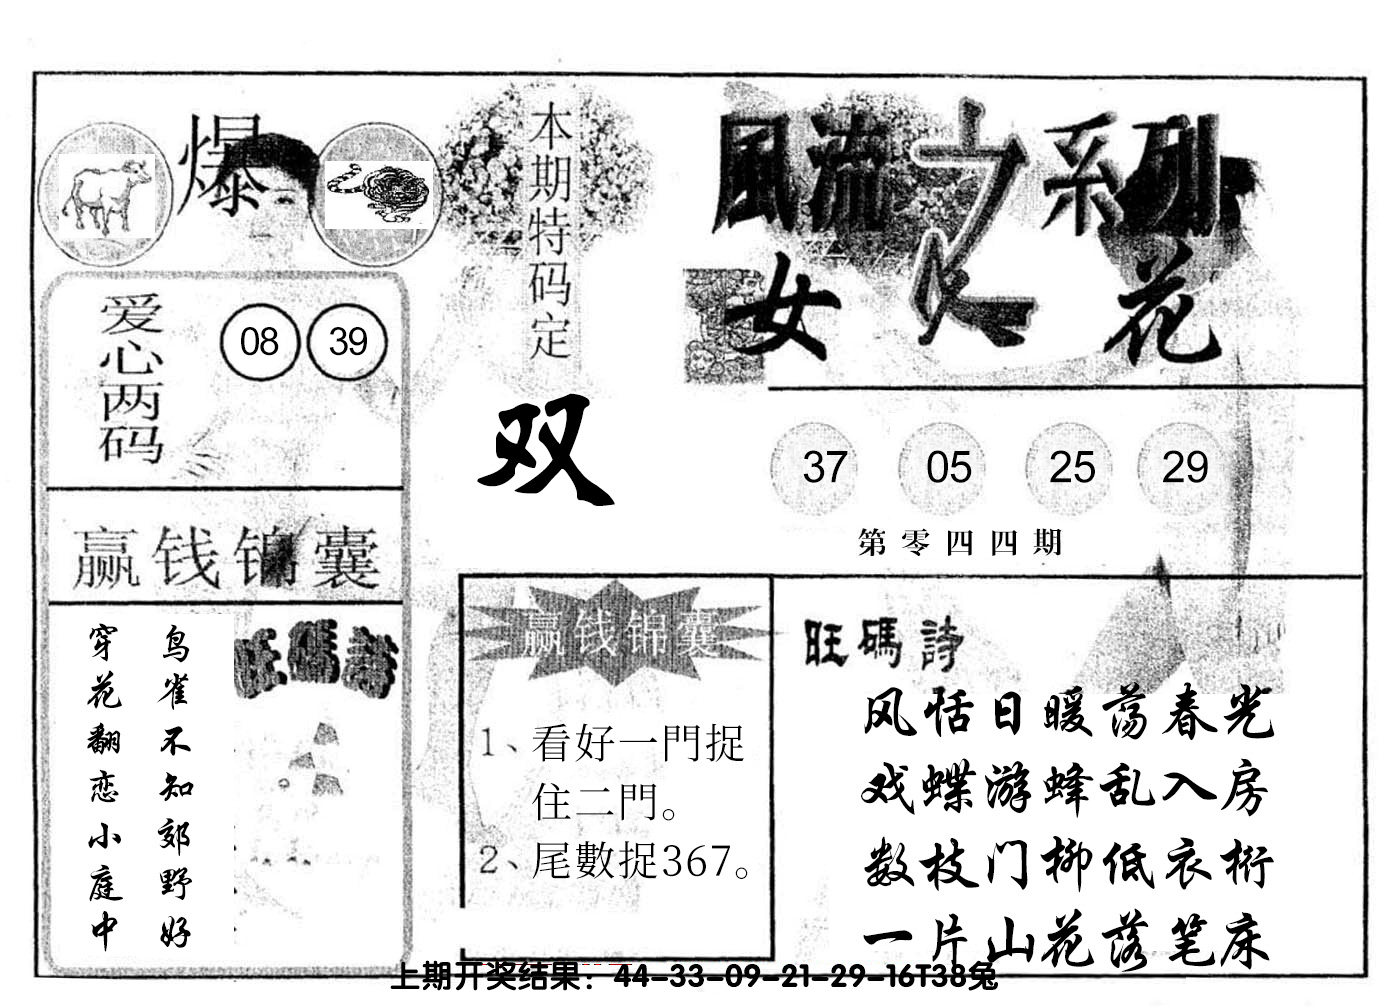 爆
爱心两码
08 39
赢钱锦囊
鸟雀不知郊野好
穿花翻恋小庭中
旺碼詩
本期特码定
双
風流之系列
女人花
37 05 25 29
第零四四期
赢钱锦囊
1、看好一門捉
住二門。
2、尾數捉367。
旺碼詩
风恬日暖荡春光
戏蝶游蜂乱入房
数枝门柳低衣桁
一片山花落笔床
上期开奖结果：44-33-09-21-29-16T38兔